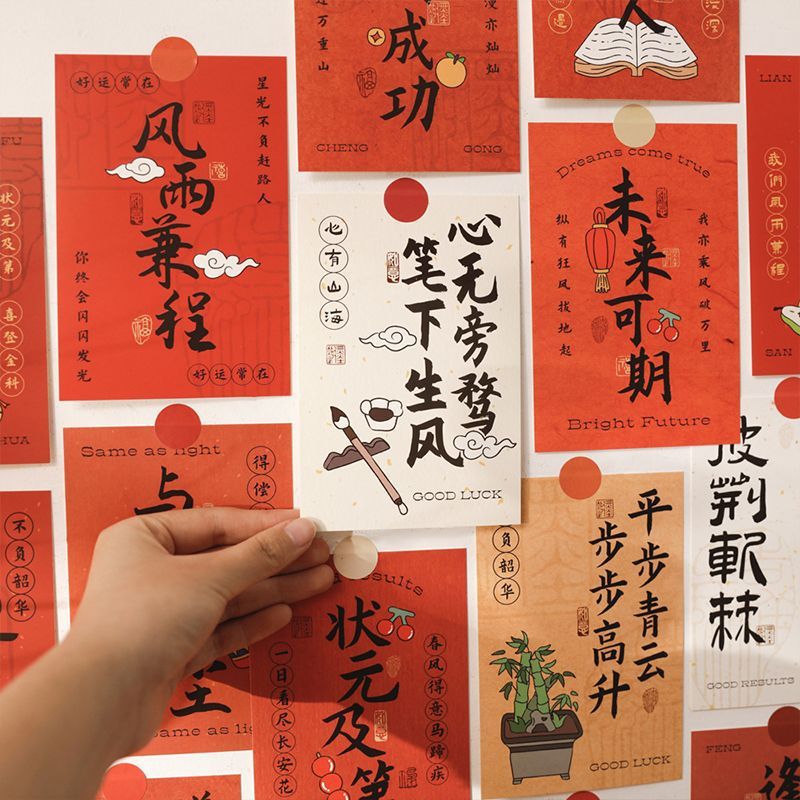 FU
状元及第
喜登金科
HUA
不负韶华
好运常在
风雨兼程
星光不负赶路人
你终会闪闪发光
好运常在
Same as light
得偿
Same as light
万重山
成功
漫亦灿灿
CHENG
GONG
心有山海
心无旁骛
笔下生风
GOOD LUCK
状元及第
一日看尽长安花
春风得意马蹄疾
人
Dreams come true
未来可期
纵有狂风拔地起
我亦乘风破万里
Bright Future
负韶华
平步青云
步步高升
GOOD LUCK
LIAN
我们风雨兼程
SAN
披荆斩棘
GOOD RESULTS
FENG
逢